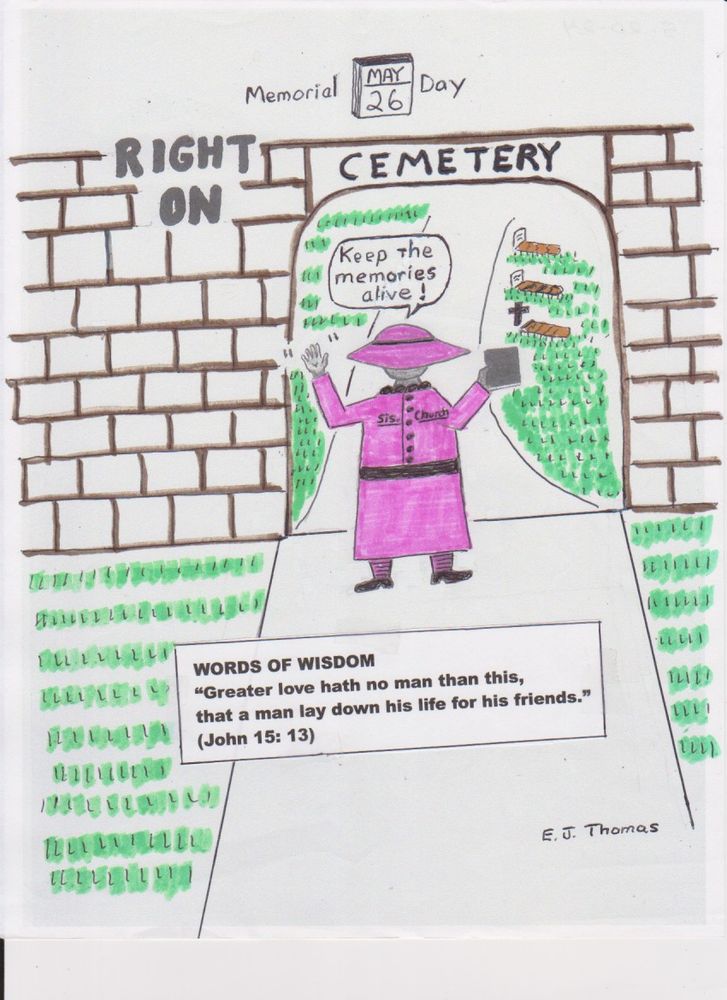 Memorial MAY 26 Day
RIGHT ON
CEMETERY
Keep The
memories
alive!
Sis. Church
WORDS OF WISDOM
“Greater love hath no man than this,
that a man lay down his life for his friends.”
(John 15: 13)
E. J. Thomas